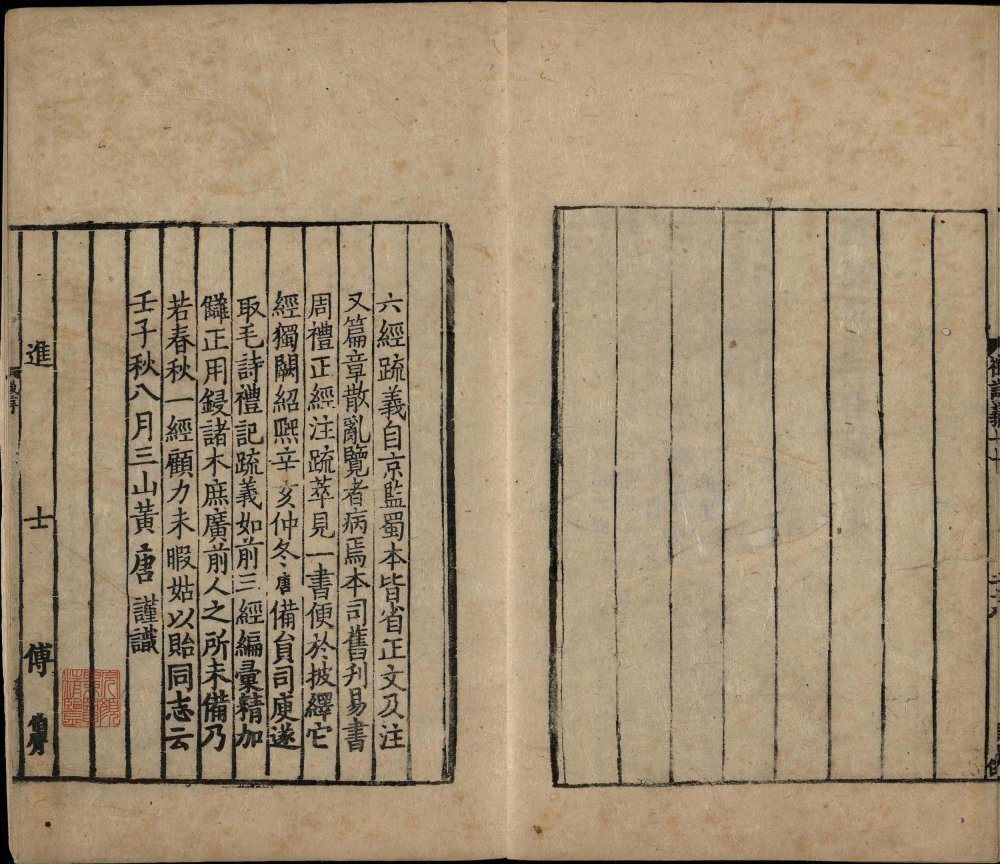 六經疏義自京監蜀本皆省正文及注
又篇章散亂覽者病焉本司舊刊易書
周禮正經注疏萃見一書便於披繹它
經獨闕紹熙辛亥仲冬唐備員司庾遂
取毛詩禮記疏義如前三經編彙精加
讎正用鋟諸木庶廣前人之所未備乃
若春秋一經顧力未暇姑以貽同志云
壬子秋八月三山黃唐謹識
進士傅